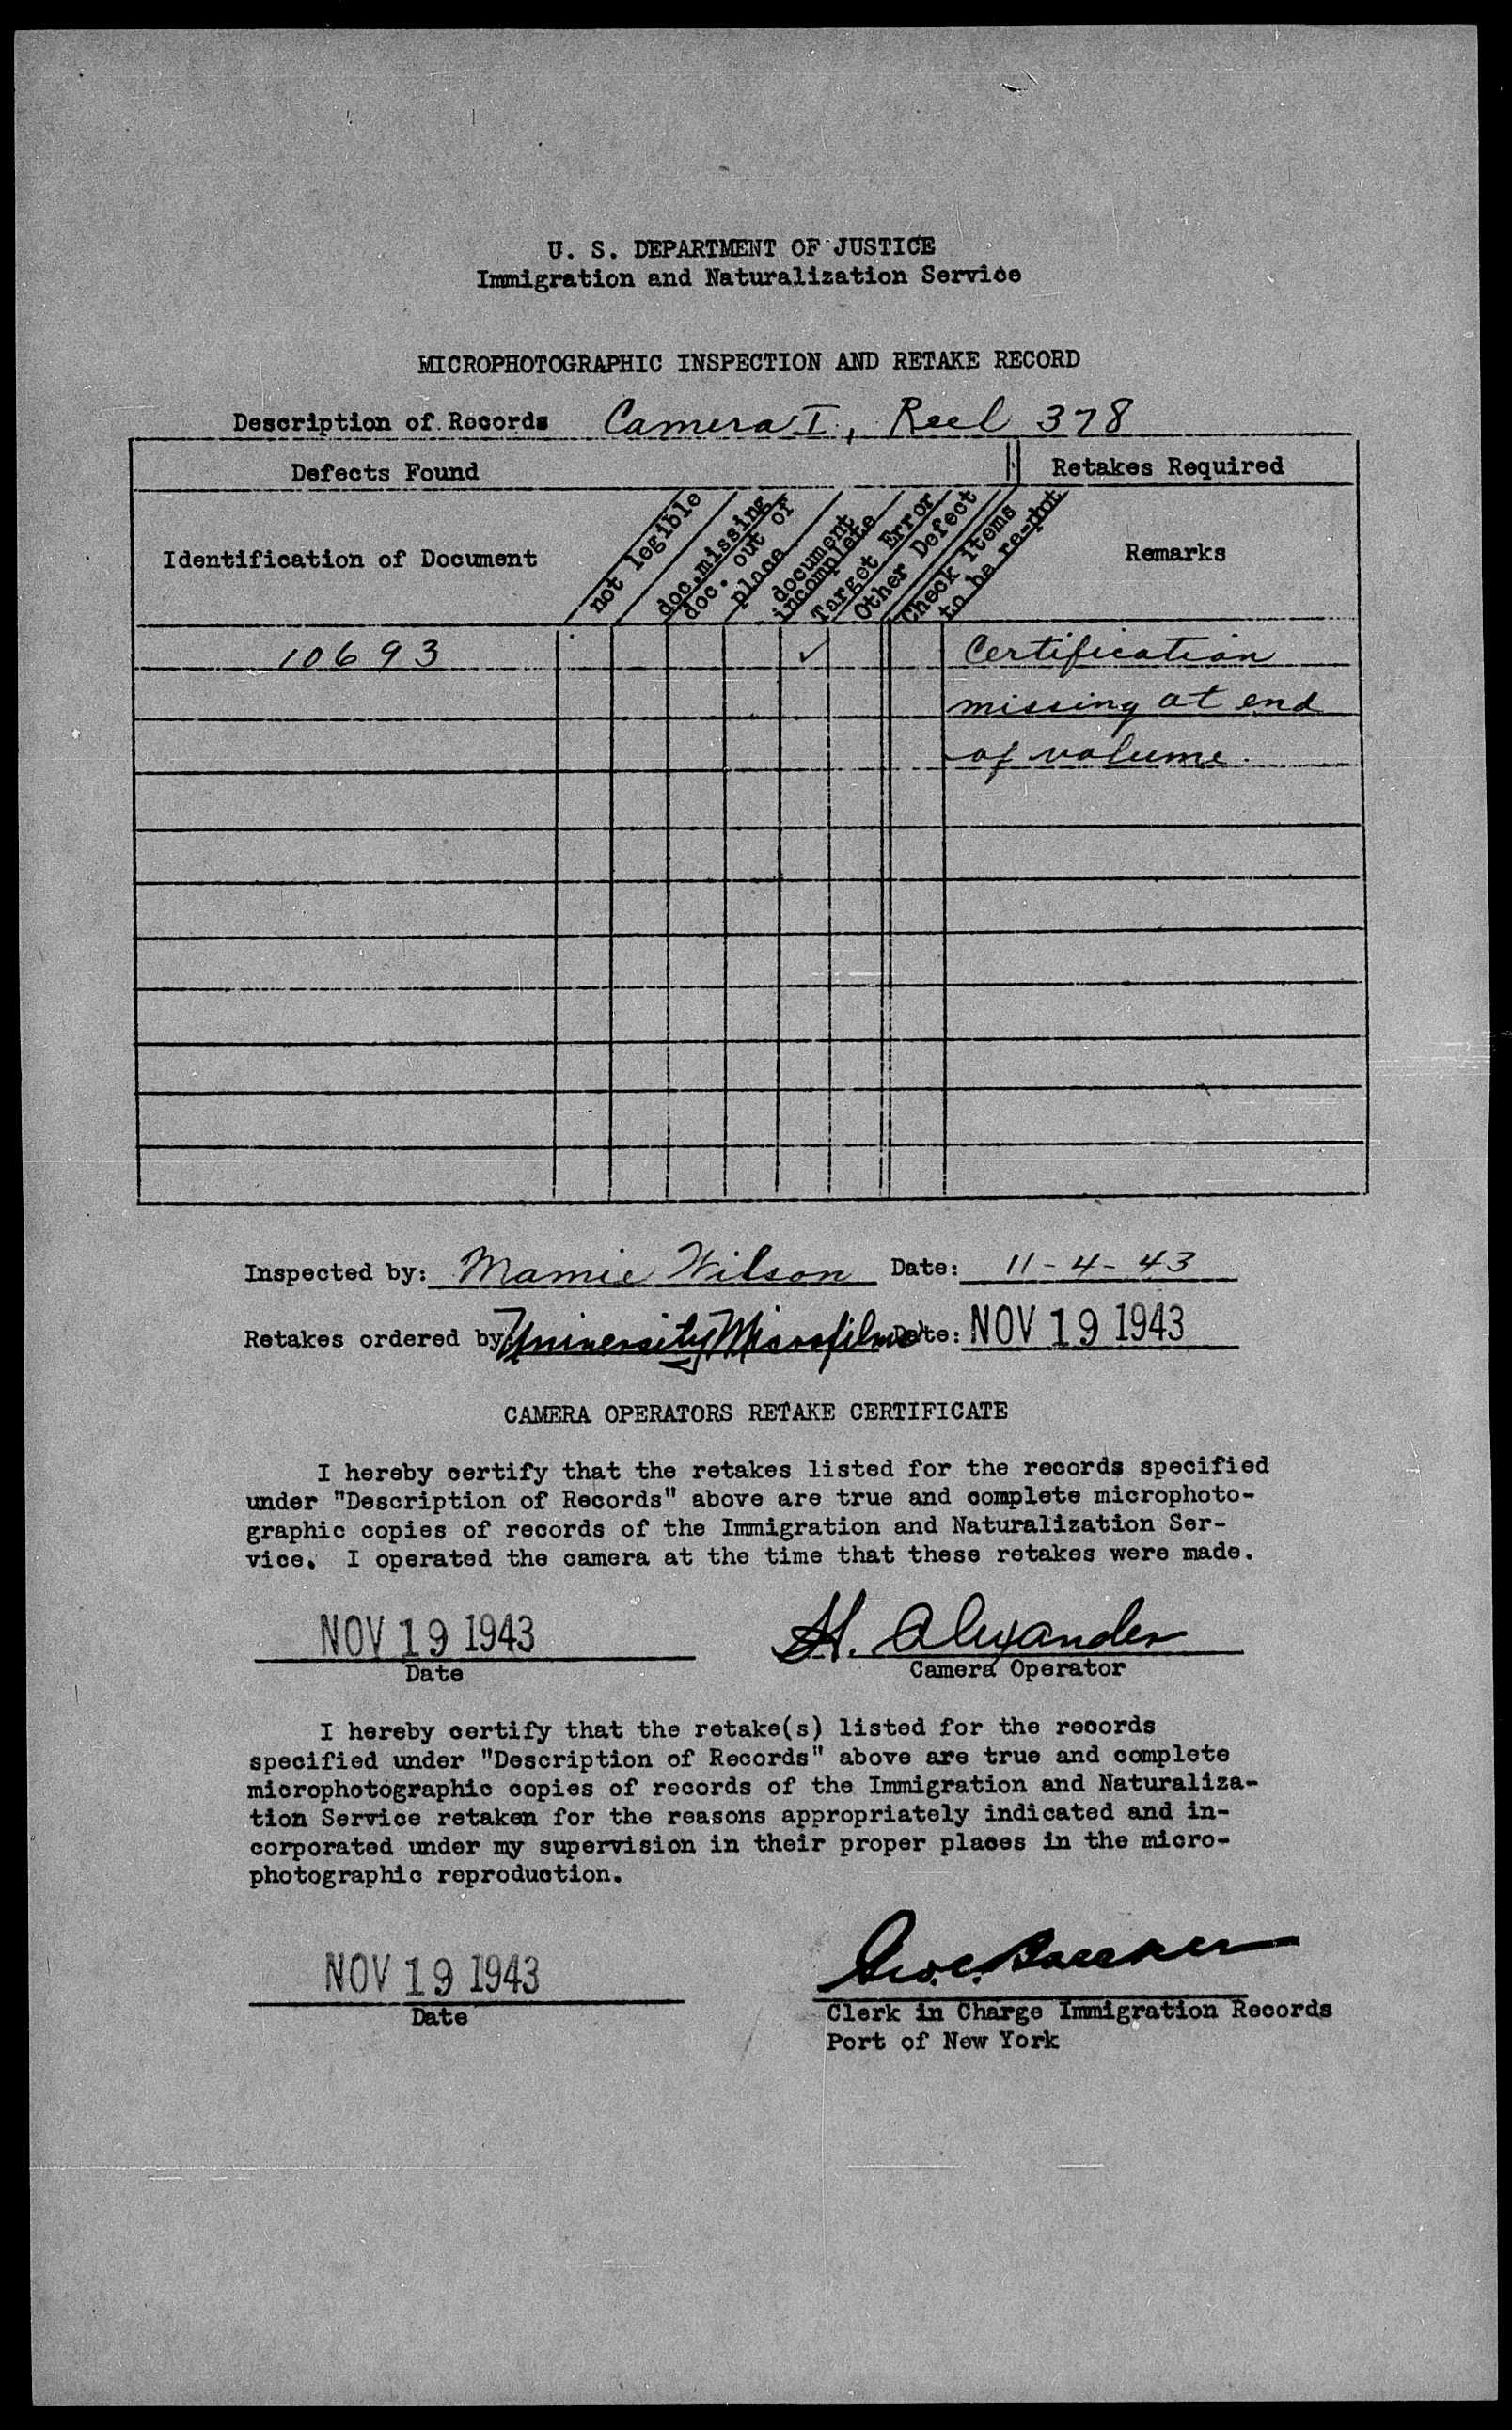 U. S. DEPARTMENT OF JUSTICE
Immigration and Naturalization Service
MICROPHOTOGRAPHIC INSPECTION AND RETAKE RECORD
Description of Records Camera I, Reel 378
Defects Found Retakes Required
Identification of Document
not legible
doc. missing
doc. out of
place
document
incomplete
Target Error
Other Defect
Check items
to be re-phot
Remarks
10693 ✓ Certification
missing at end
of volume.
Inspected by: Mamie Wilson Date: 11-4-43
Retakes ordered by: University Microfilms Date: NOV 19 1943
CAMERA OPERATORS RETAKE CERTIFICATE
I hereby certify that the retakes listed for the records specified
under "Description of Records" above are true and complete microphoto-
graphic copies of records of the Immigration and Naturalization Ser-
vice. I operated the camera at the time that these retakes were made.
NOV 19 1943 H. Alexander
Date Camera Operator
I hereby certify that the retake(s) listed for the records
specified under "Description of Records" above are true and complete
microphotographic copies of records of the Immigration and Naturaliza-
tion Service retaken for the reasons appropriately indicated and in-
corporated under my supervision in their proper places in the micro-
photographic reproduction.
NOV 19 1943
Date
Clerk in Charge Immigration Records
Port of New York